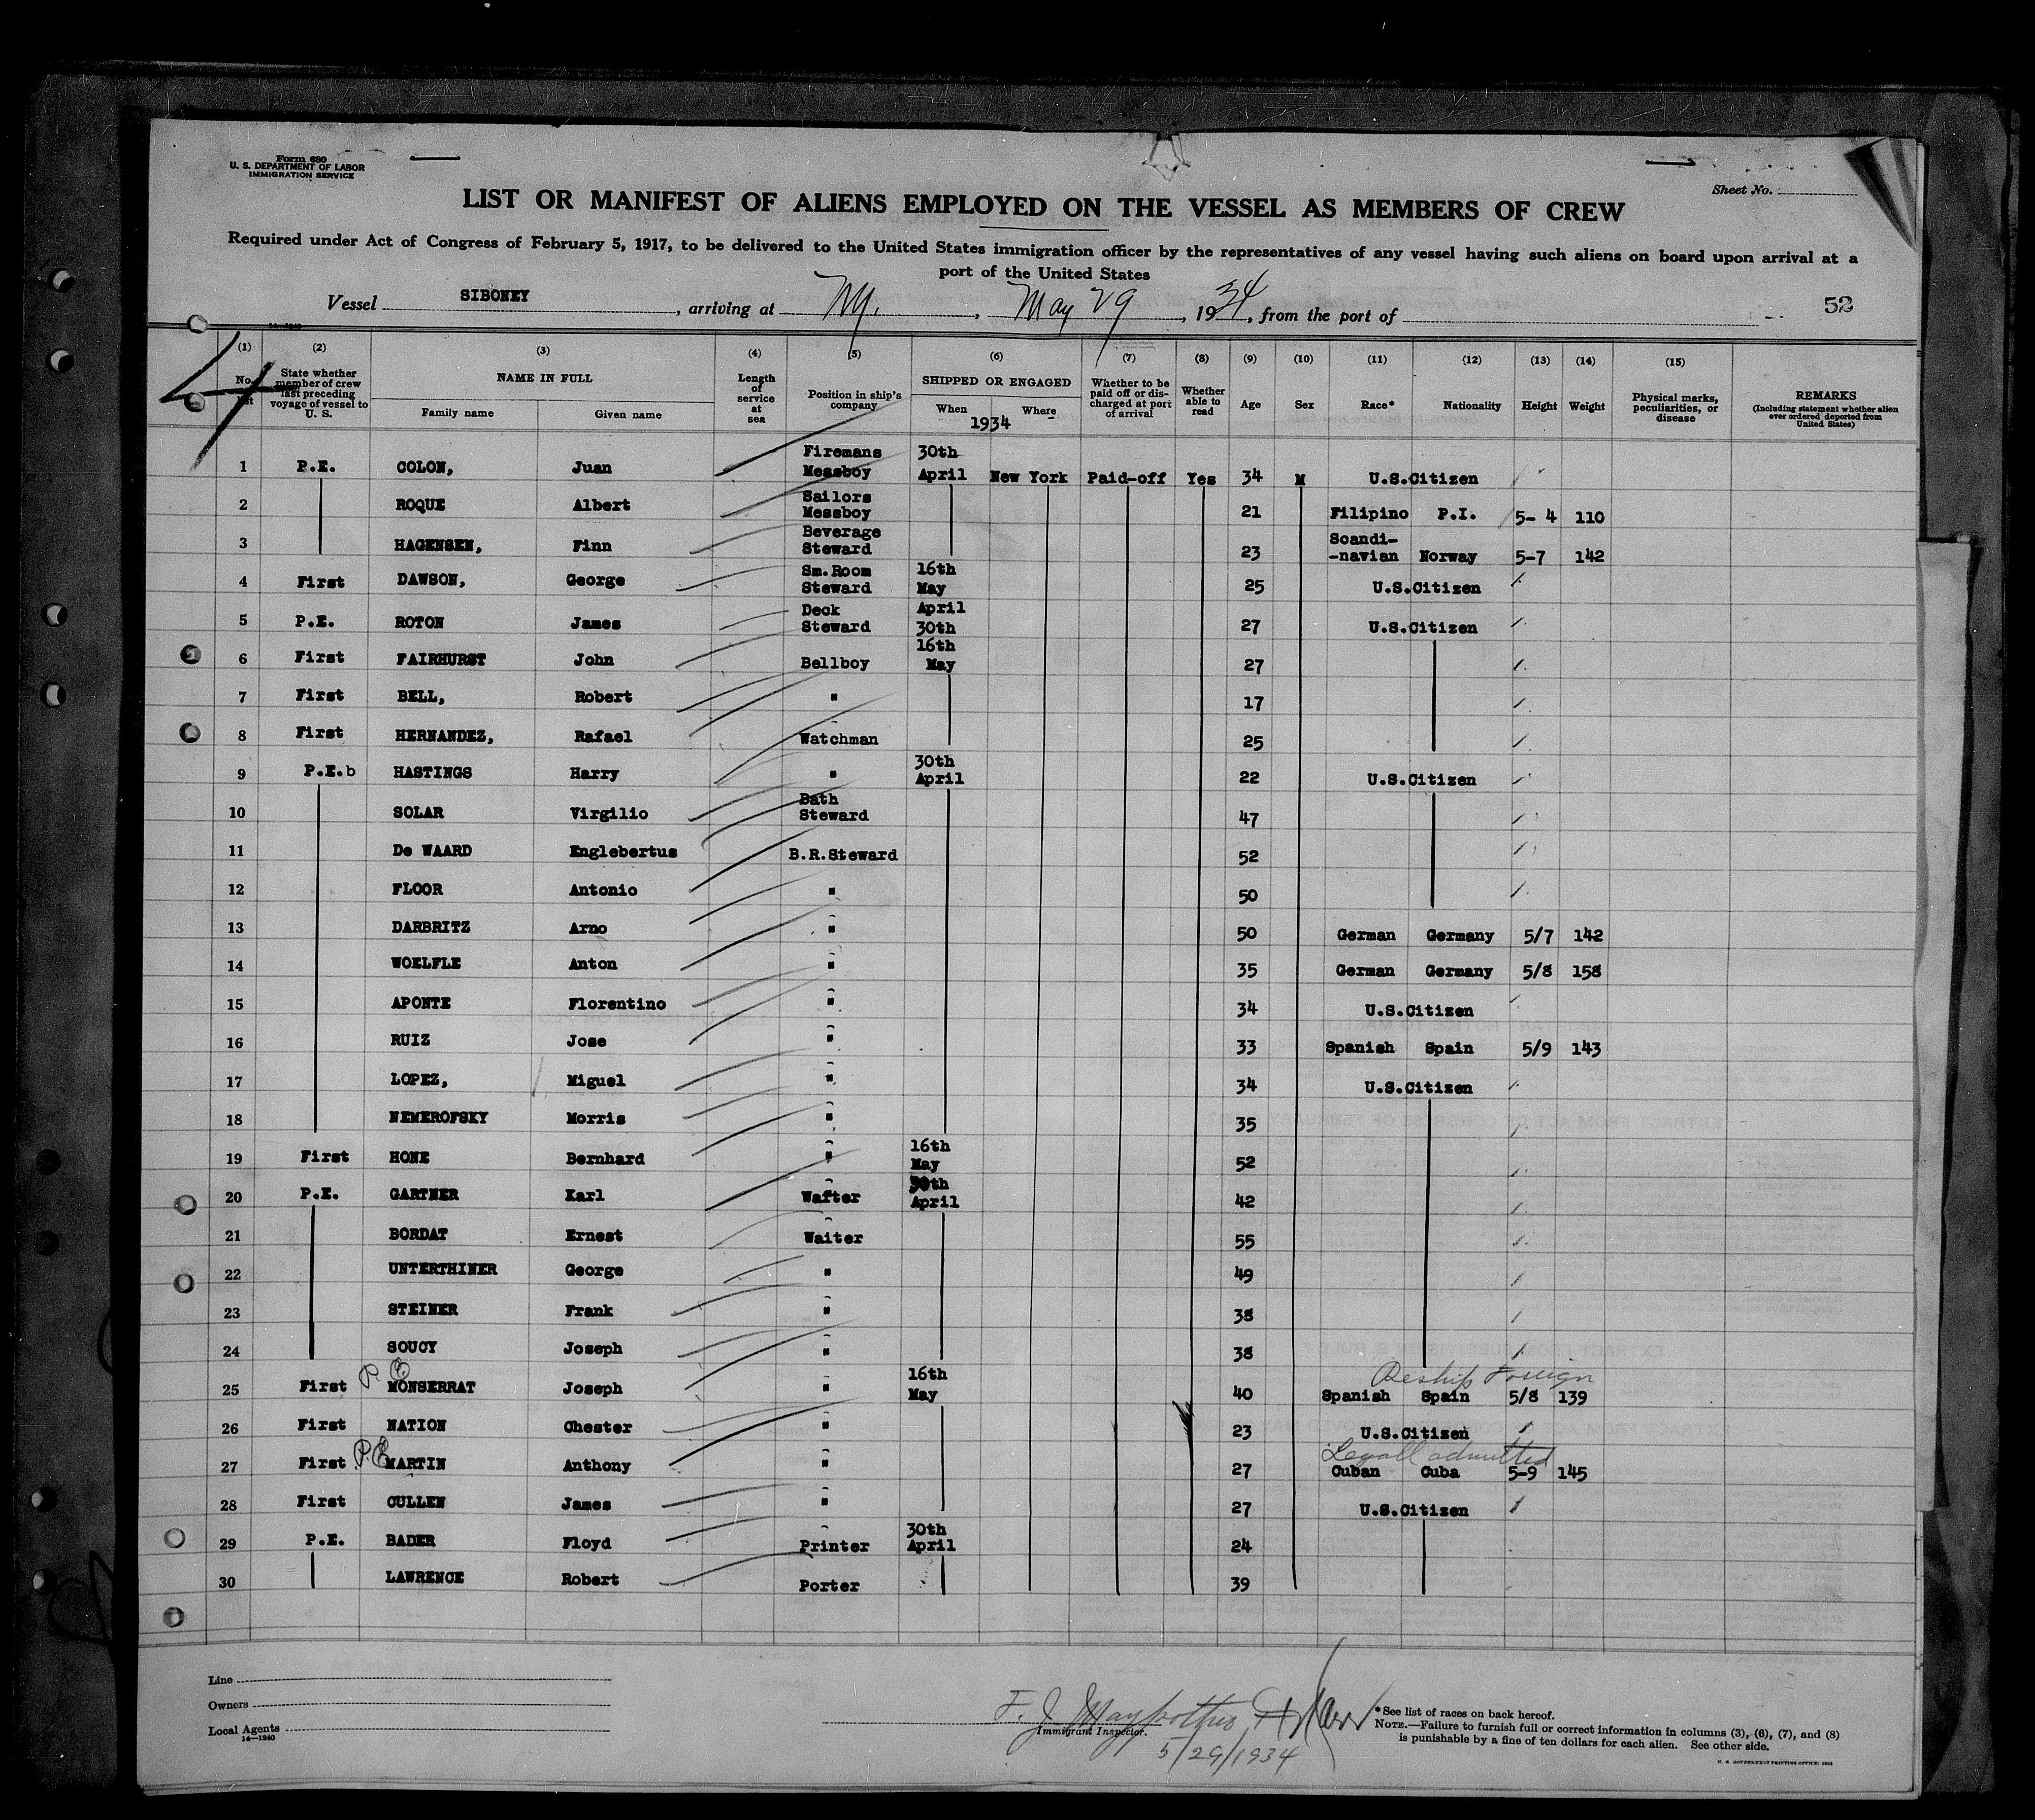 Form 680
U. S. DEPARTMENT OF LABOR
IMMIGRATION SERVICE
Sheet No.
LIST OR MANIFEST OF ALIENS EMPLOYED ON THE VESSEL AS MEMBERS OF CREW
Required under Act of Congress of February 5, 1917, to be delivered to the United States immigration officer by the representatives of any vessel having such aliens on board upon arrival at a
port of the United States
Vessel SIBONEY, arriving at NY., May 29, 1934, from the port of 52
14-1240
4
(1) (2) (3) (4) (5) (6) (7) (8) (9) (10) (11) (12) (13) (14) (15)
No. List State whether member of crew last preceding voyage of vessel to U. S. NAME IN FULL Family name Given name Length of service at sea Position in ship's company SHIPPED OR ENGAGED When Where 1934 Whether to be paid off or discharged at port of arrival Whether able to read Age Sex Race* Nationality Height Weight Physical marks, peculiarities, or disease REMARKS (Including statement whether alien ever ordered deported from United States)
1 P.E. COLON, Juan Firemans Messboy 30th April New York Paid-off Yes 34 M U.S.Citizen
2 ROQUE Albert Sailors Messboy 21 Filipino P.I. 5- 4 110
3 HAGENSEN, Finn Beverage Steward 23 Scandi- -navian Norway 5-7 142
4 First DAWSON, George Sm.Room Steward 16th May 25 U.S.Citizen
5 P.E. ROTON James Deck Steward April 30th 27 U.S.Citizen
6 First FAIRHURST John Bellboy 16th May 27
7 First BELL, Robert " 17
8 First HERNANDEZ, Rafael Watchman 25
9 P.E.b HASTINGS Harry " 30th April 22 U.S.Citizen
10 SOLAR Virgilio Bath Steward 47
11 De WAARD Englebertus B.R.Steward 52
12 FLOOR Antonio " 50
13 DARBRITZ Arno " 50 German Germany 5/7 142
14 WOELFLE Anton " 35 German Germany 5/8 158
15 APONTE Florentino " 34 U.S.Citizen
16 RUIZ Jose " 33 Spanish Spain 5/9 143
17 LOPEZ, Miguel " 34 U.S.Citizen
18 NEMEROFSKY Morris " 35
19 First HONE Bernhard " 16th May 52
20 P.E. GARTNER Karl Waiter 30th April 42
21 BORDAT Ernest Waiter 55
22 UNTERTHINER George " 49
23 STEINER Frank " 38
24 SOUCY Joseph " 38
25 First P.E. MONSERRAT Joseph " 16th May 40 Reship Foreign Spanish Spain 5/8 139
26 First NATION Chester " 23 U.S.Citizen
27 First P.E. MARTIN Anthony " 27 Legall admitted Cuban Cuba 5-9 145
28 First CULLEN James " 27 U.S.Citizen
29 P.E. BADER Floyd Printer 30th April 24
30 LAWRENCE Robert Porter 39
Line
Owners
Local Agents
14-1240
F. J.
Immigrant Inspector.
5/29/1934
*See list of races on back hereof.
NOTE.—Failure to furnish full or correct information in columns (3), (6), (7), and (8)
is punishable by a fine of ten dollars for each alien. See other side.